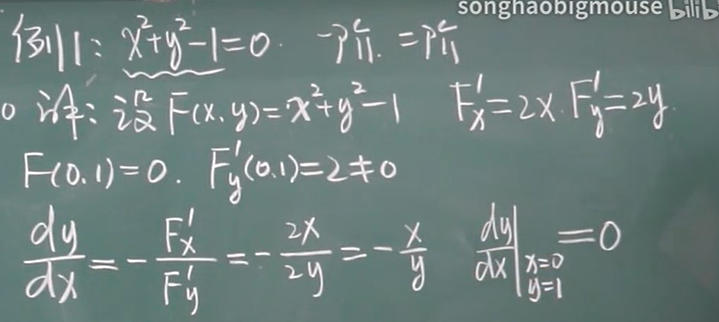 songhaobigmouse bilib
例1: x²+y²-1=0. 一阶. 二阶
证: 设 F(x,y)=x²+y²-1 F'x=2x. F'y=2y.
F(0,1)=0. F'y(0,1)=2≠0
dy/dx = - F'x/F'y = - 2x/2y = - x/y dy/dx|x=0 y=1 =0